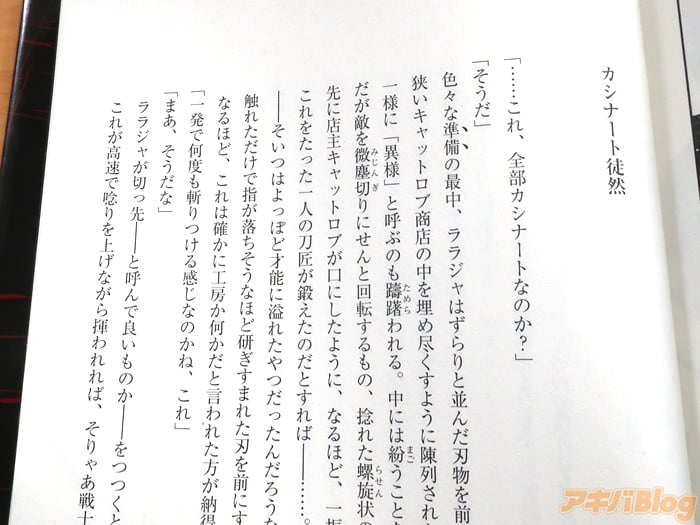 カシナート徒然
「……これ、全部カシナートなのか？」
「そうだ」
色々な準備の最中、ララジャはずらりと並んだ刃物を前
狭いキャットロブ商店の中を埋め尽くすように陳列され
一様に「異様」と呼ぶのも躊躇われる。中には紛うことな
ためら
まご
だが敵を微塵切りにせんと回転するもの、捻れた螺旋状の
みじんぎ
らせん
先に店主キャットロブが口にしたように、なるほど、一振
これをたった一人の刀匠が鍛えたのだとすれば――……。
――そいつはよっぽど才能に溢れたやつだったんだろうな
触れただけで指が落ちそうなほど研ぎすまれた刃を前にす
なるほど、これは確かに工房か何かだと言われた方が納得
「一発で何度も斬りつける感じなのかね、これ」
「まあ、そうだな」
ララジャが切っ先――と呼んで良いものか――をつつくと
これが高速で唸りを上げながら揮われれば、そりゃあ戦士
アキバBlog